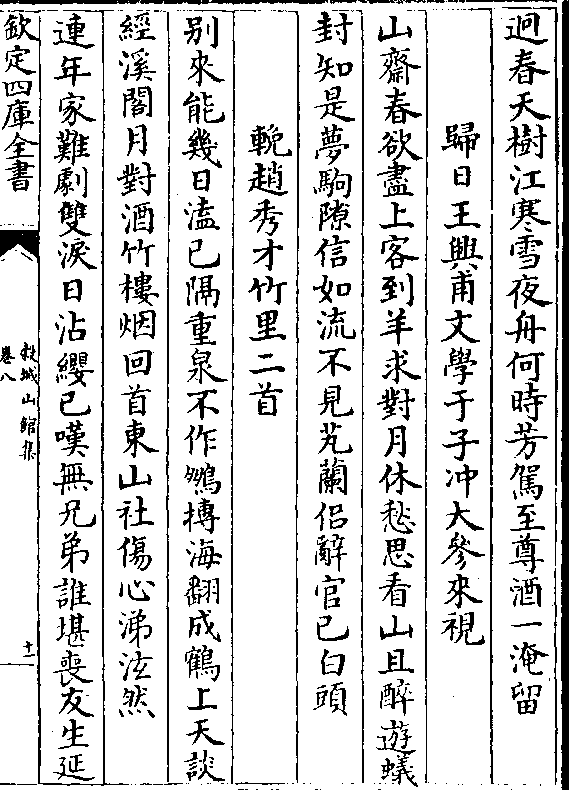 迥春天樹江寒雪夜舟何時芳駕至尊酒一淹留
歸日王興甫文學于子冲大參來視
山齋春欲盡上客到羊求對月休愁思看山且醉遊蟻
封知是夢駒隙信如流不見芄蘭侣辭官已白頭
輓趙秀才竹里二首
别來能幾日溘已隔重泉不作鵬摶海翻成鶴上天談
經溪閣月對酒竹樓烟回首東山社傷心涕泫然
連年家難劇雙淚日沾纓已嘆無兄弟誰堪喪友生延
欽定四庫全書
穀城山館集
卷八
十一